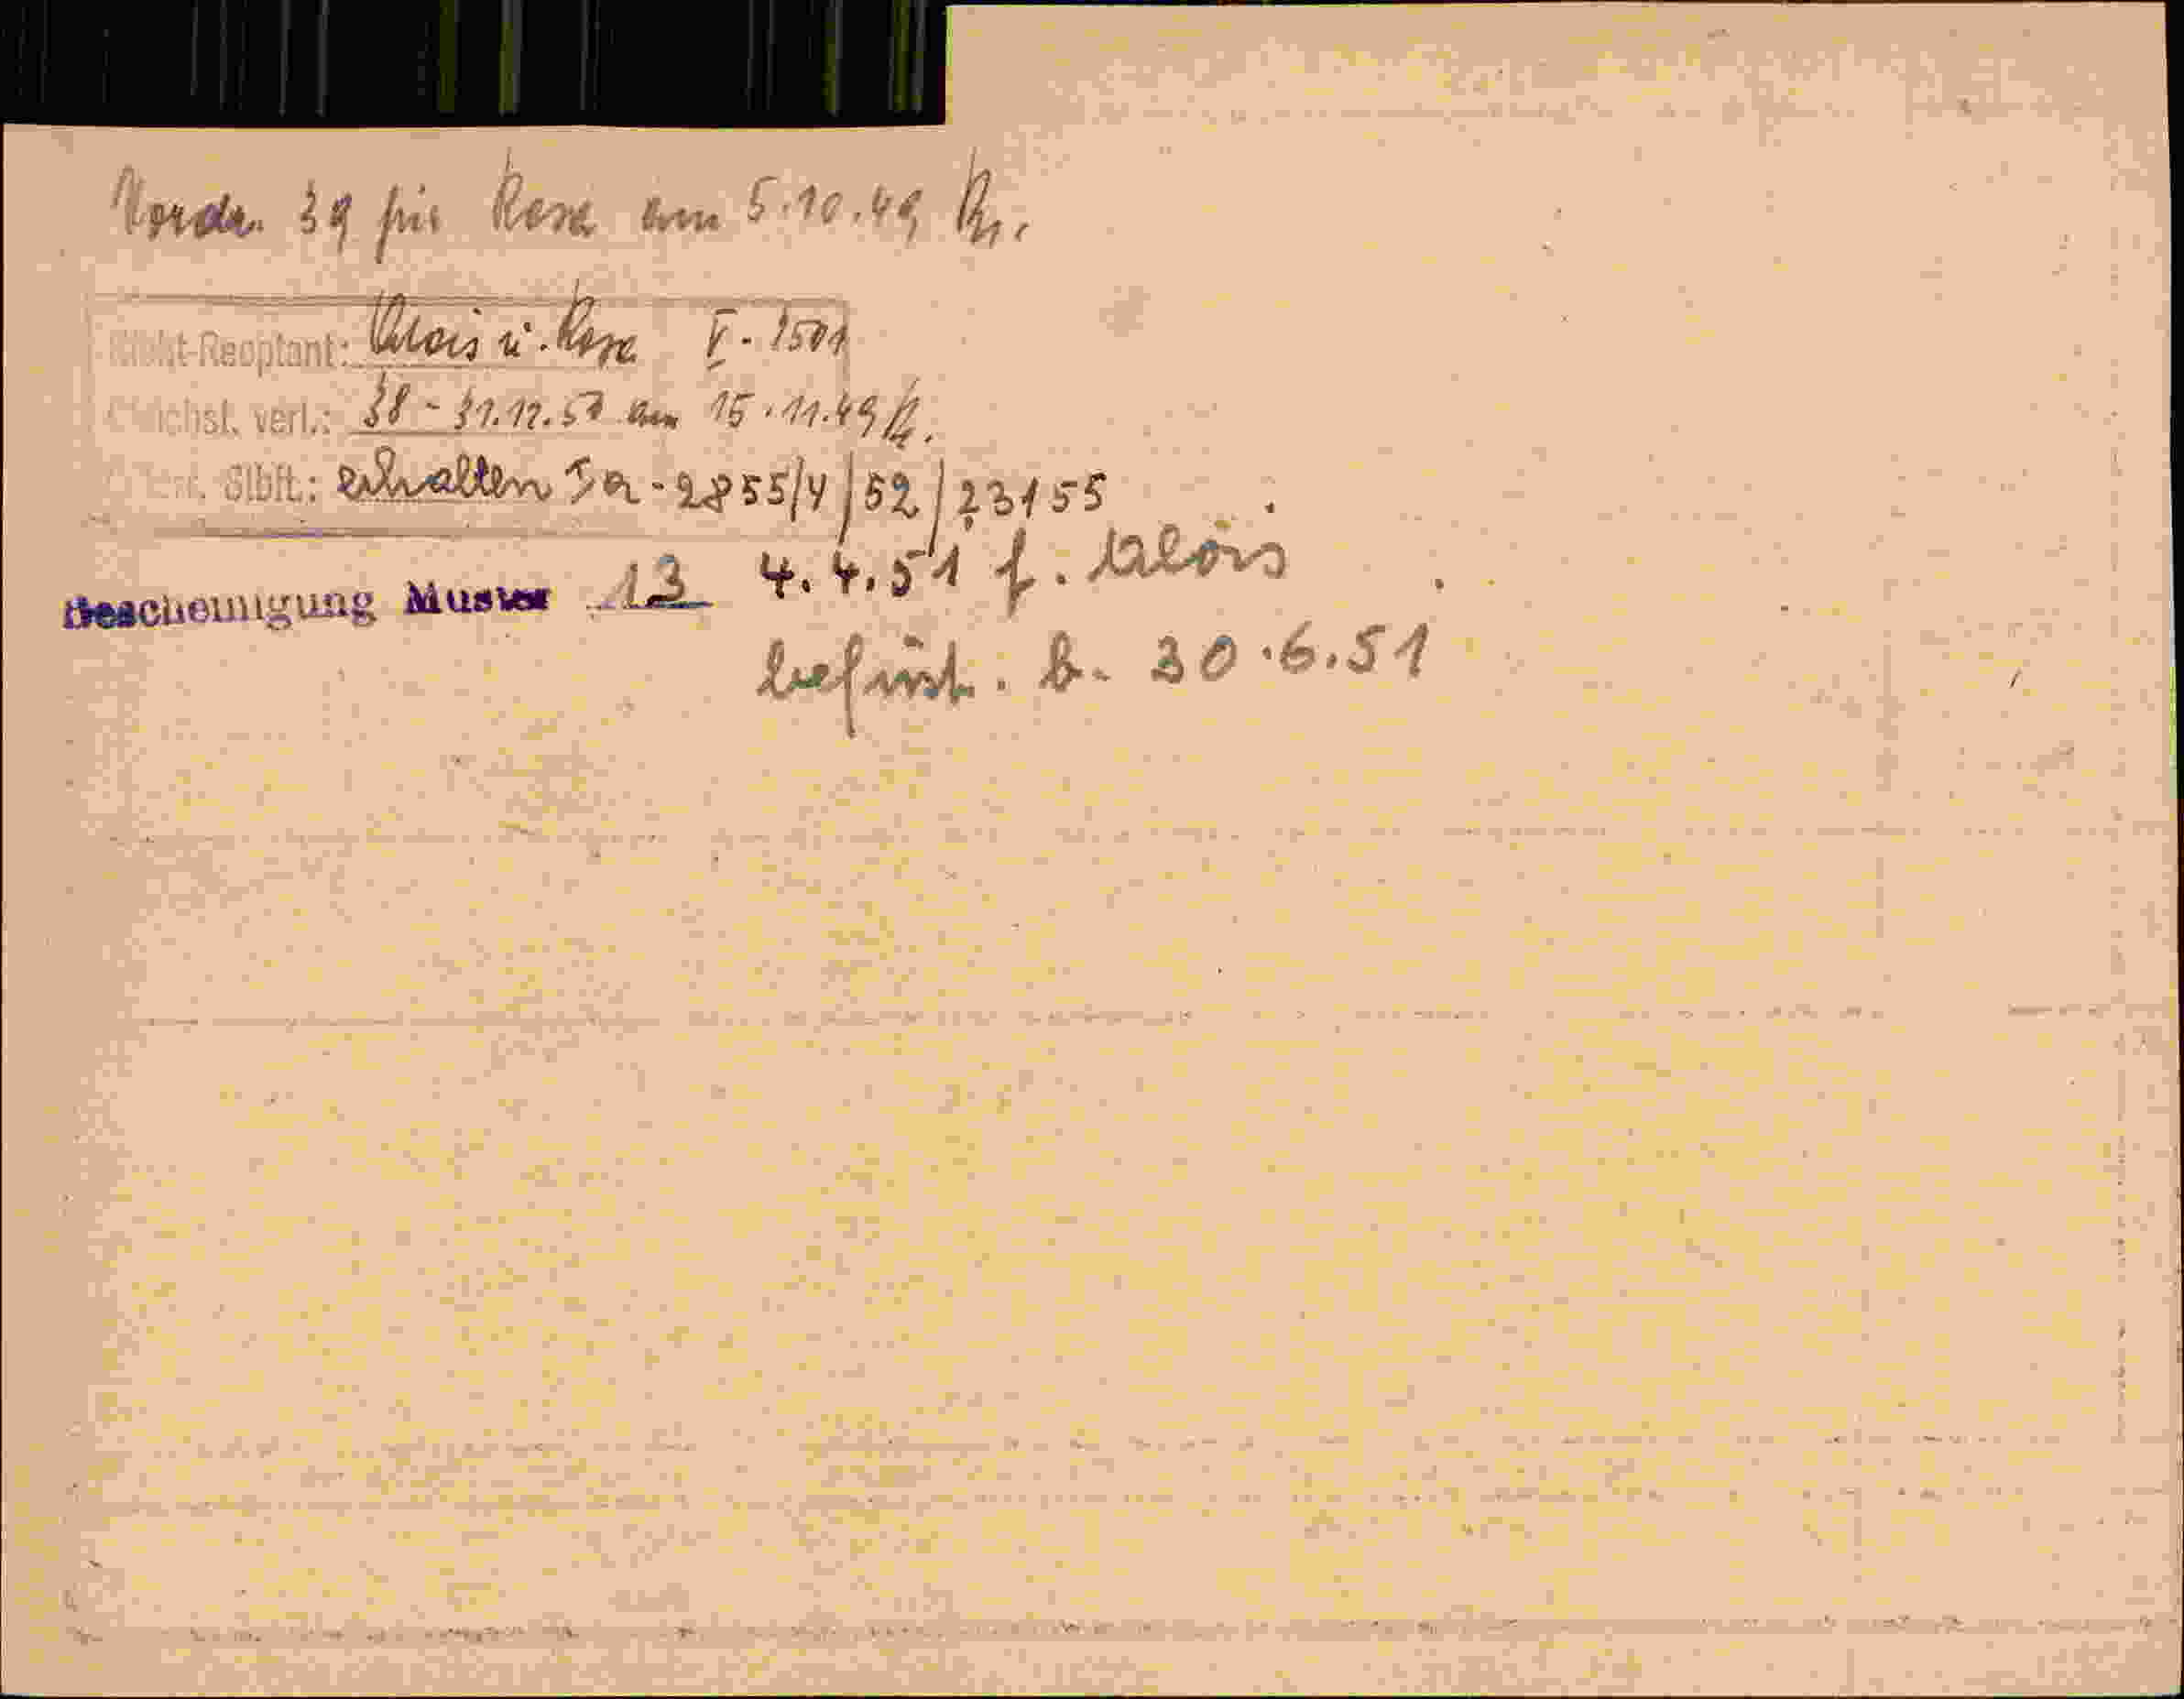 Vordr. 39 für Rosa am 5.10.49
Nicht-Reoptant: Alois u. Rosa V - 1501
verl.: 38 - 31.12.50 am 15.11.49
Stbft.: erhalten Ia - 2855/4/52/23155
Bescheinigung Muster 13 4.4.51 f. Alois
befrist. b. 30.6.51